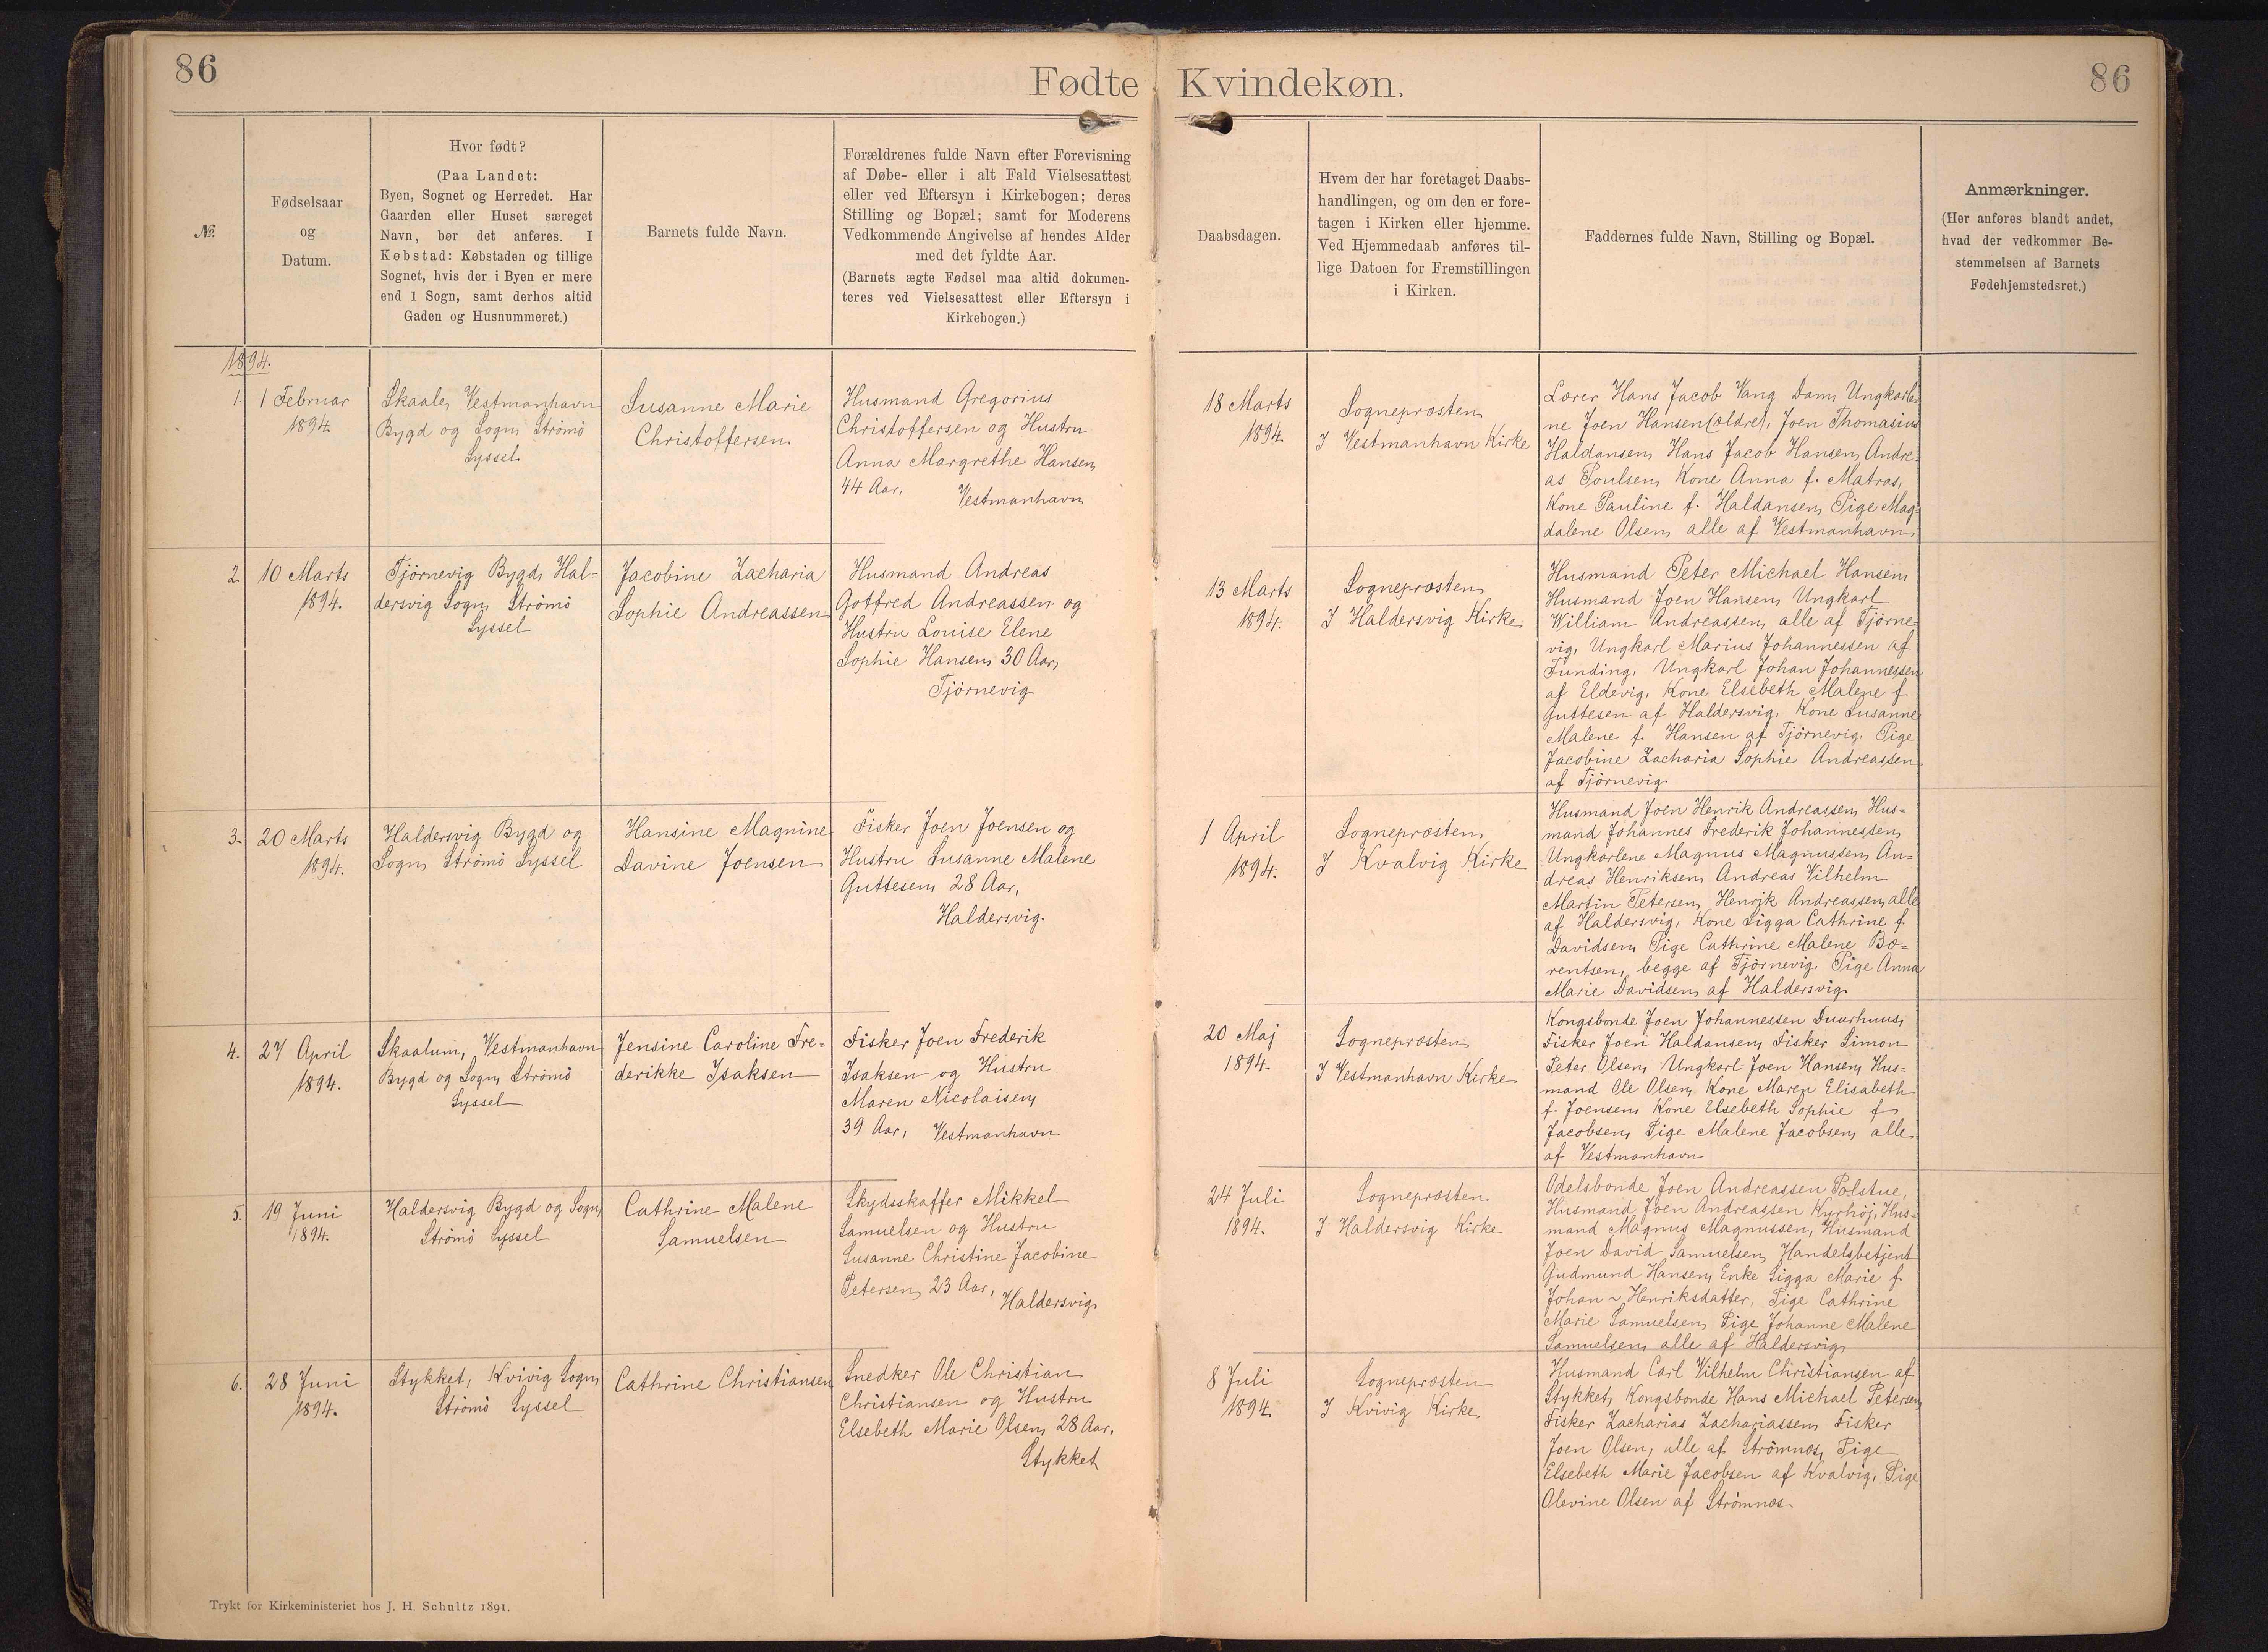 86
Fødte Kvindekøn.
86
№.
Fødselsaar
og
Datum.
Hvor født?
(Paa Landet:
Byen, Sognet og Herredet. Har
Gaarden eller Huset særeget
Navn, bør det anføres. I
Købstad: Købstaden og tillige
Sognet, hvis der i Byen er mere
end 1 Sogn, samt derhos altid
Gaden og Husnummeret.)
Barnets fulde Navn.
Forældrenes fulde Navn efter Forevisning
af Døbe- eller i alt Fald Vielsesattest
eller ved Eftersyn i Kirkebogen; deres
Stilling og Bopæl; samt for Moderens
Vedkommende Angivelse af hendes Alder
med det fyldte Aar.
(Barnets ægte Fødsel maa altid dokumen-
teres ved Vielsesattest eller Eftersyn i
Kirkebogen.)
Daabsdagen.
Hvem der har foretaget Daabs-
handlingen, og om den er fore-
tagen i Kirken eller hjemme.
Ved Hjemmedaab anføres til-
lige Datoen for Fremstillingen
i Kirken.
Faddernes fulde Navn, Stilling og Bopæl.
Anmærkninger.
(Her anføres blandt andet,
hvad der vedkommer Be-
stemmelsen af Barnets
Fødehjemstedsret.)
1894.
1.
1 Februar
1894.
Skaale, Vestmanhavn
Bygd og Sogn, Strömö
Syssel
Susanne Marie
Christoffersen
Husmand Gregorius
Christoffersen og Hustru
Anna Margrethe Hansen,
44 Aar,
Vestmanhavn
18 Marts
1894.
Sognepræsten
I Vestmanhavn Kirke
Lærer Hans Jacob Vang Dam, Ungkarle-
ne Joen Hansen (ældre), Joen Thomasius
Haldansen, Hans Jacob Hansen, Andre-
as Poulsen, Kone Anna f. Matras,
Kone Pauline f. Haldansen, Pige Mag-
dalene Olsen, alle af Vestmanhavn
2.
10 Marts
1894.
Tjörnevig Bygd, Hal-
dersvig Sogn, Strömö
Syssel
Jacobine Zacharia
Sophie Andreassen
Husmand Andreas
Gotfred Andreassen og
Hustru Louise Elene
Sophie Hansen, 30 Aar,
Tjörnevig
13 Marts
1894.
Sognepræsten
I Haldersvig Kirke
Husmand Peter Michael Hansen,
Husmand Joen Hansen, Ungkarl
William Andreassen, alle af Tjörne-
vig, Ungkarl Marius Johannessen af
Funding, Ungkarl Johan Johannessen
af Eldevig, Kone Elsebeth Malene f.
Guttesen af Haldersvig, Kone Susanne
Malene f. Hansen af Tjörnevig, Pige
Jacobine Zacharia Sophie Andreassen
af Tjörnevig
3.
20 Marts
1894.
Haldersvig Bygd og
Sogn, Strömö Syssel
Hansine Magnine
Davine Joensen
Fisker Joen Joensen og
Hustru Susanne Malene
Guttesen, 28 Aar,
Haldersvig.
1 April
1894.
Sognepræsten
I Kvalvig Kirke
Husmand Joen Henrik Andreassen, Hus-
mand Johannes Frederik Johannessen,
Ungkarlene Magnus Magnussen, An-
dreas Henriksen, Andreas Vilhelm
Martin Petersen, Henrik Andreassen, alle
af Haldersvig, Kone Sigga Cathrine f.
Davidsen, Pige Cathrine Malene Bæ-
rentsen, begge af Tjörnevig, Pige Anna
Marie Davidsen, af Haldersvig.
4.
27 April
1894.
Skaalum, Vestmanhavn
Bygd og Sogn, Strömö
Syssel
Jensine Caroline Fre-
derikke Isaksen
Fisker Joen Frederik
Isaksen og Hustru
Maren Nicolaisen,
39 Aar, Vestmanhavn
20 Maj
1894.
Sognepræsten
I Vestmanhavn Kirke
Kongsbonde Joen Johannessen Duurhuus,
Fisker Joen Haldansen, Fisker Simon
Peter Olsen, Ungkarl Joen Hansen, Hus-
mand Ole Olsen, Kone Maren Elisabeth
f. Joensen, Kone Elsebeth Sophie f.
Jacobsen, Pige Malene Jacobsen, alle
af Vestmanhavn
5.
19 Juni
1894.
Haldersvig Bygd og Sogn,
Strömö Syssel
Cathrine Malene
Samuelsen
Skydsskaffer Mikkel
Samuelsen og Hustru
Susanne Christine Jacobine
Petersen, 23 Aar,
Haldersvig
24 Juli
1894.
Sognepræsten
I Haldersvig Kirke
Odelsbonde Joen Andreassen Polstue,
Husmand Joen Andreassen Kyrhöj, Hus-
mand Magnus Magnussen, Husmand
Joen David Samuelsen, Handelsbetjent
Gudmund Hansen, Enke Sigga Marie f.
Johan-Henriksdatter, Pige Cathrine
Marie Samuelsen, Pige Johanne Malene
Samuelsen, alle af Haldersvig
6.
28 Juni
1894.
Stykket, Kvivig Sogn,
Strömö Syssel
Cathrine Christiansen
Snedker Ole Christian
Christiansen og Hustru
Elsebeth Marie Olsen, 28 Aar,
Stykket
8 Juli
1894
Sognepræsten
I Kvivig Kirke
Husmand Carl Vilhelm Christiansen af
Stykket, Kongsbonde Hans Michael Petersen,
Fisker Zacharias Zachariassen, Fisker
Joen Olsen, alle af Strömnæs, Pige
Elsebeth Marie Jacobsen af Kvalvig, Pige
Olevine Olsen af Strömnæs
Trykt for Kirkeministeriet hos J. H. Schultz 1891.